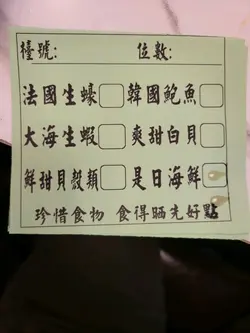 檯號: 位數:
法國生蠔 韓國鮑魚
大海生蝦 爽甜白貝
鮮甜貝殼類 是日海鮮
珍惜食物 食得晒先好點